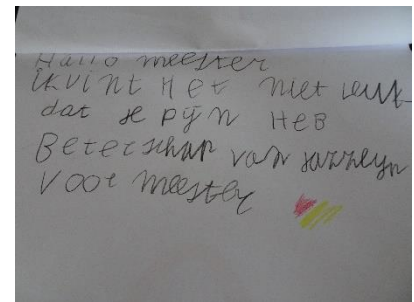 Hallo meester
ik vint Het niet leuk
dat je pijn HeB
Beterschap van
voor meester